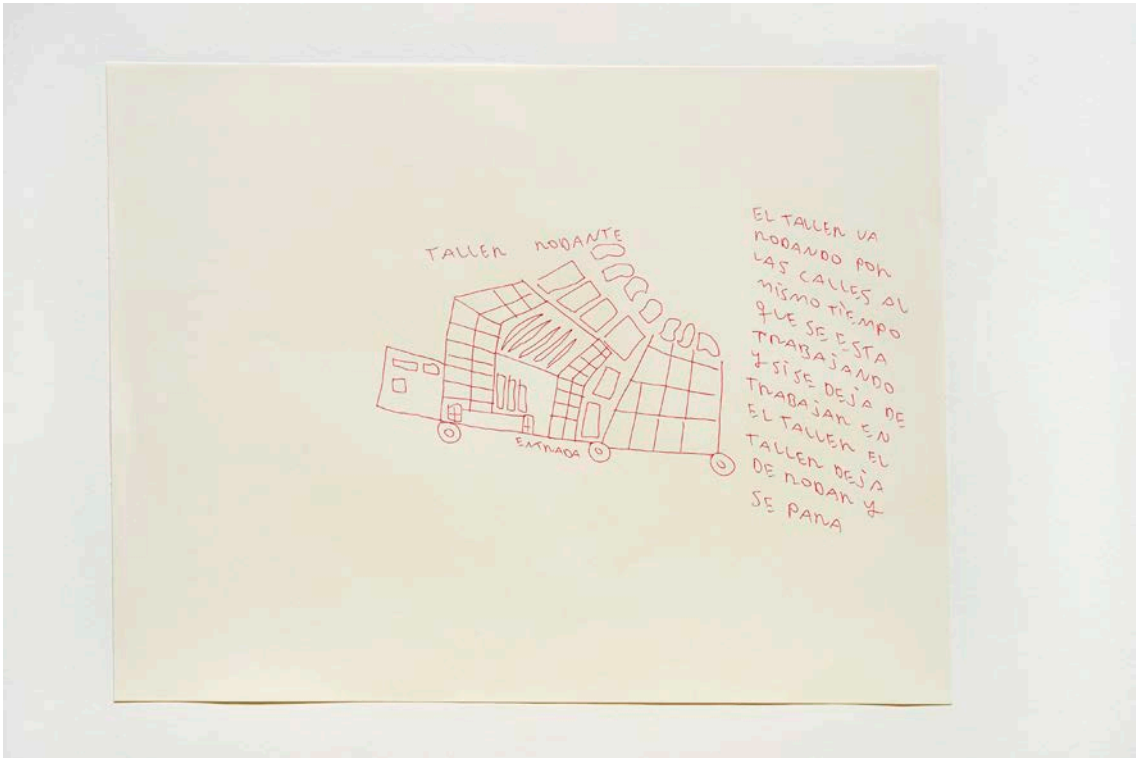 TALLER RODANTE
ENTRADA
EL TALLER VA
RODANDO POR
LAS CALLES AL
MISMO TIEMPO
QUE SE ESTA
TRABAJANDO
Y SI SE DEJA DE
TRABAJAR EN
EL TALLER EL
TALLER DEJA
DE RODAR Y
SE PARA